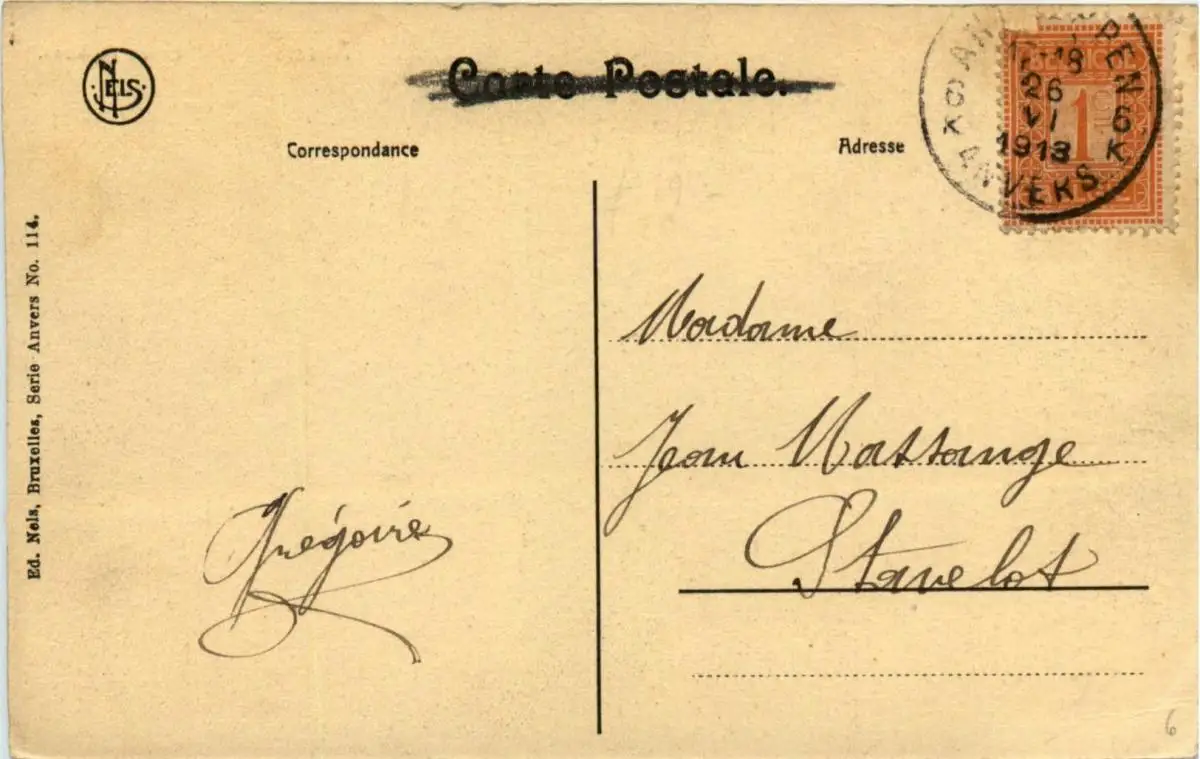 NELS
Carte Postale.
Correspondance
Adresse
ANTWERPEN
26
VI
1913
6K
ANVERS
1
Ed. Nels, Bruxelles, Serie Anvers No. 114.
Madame
Jean Massange
Stavelot
Grégoire
6